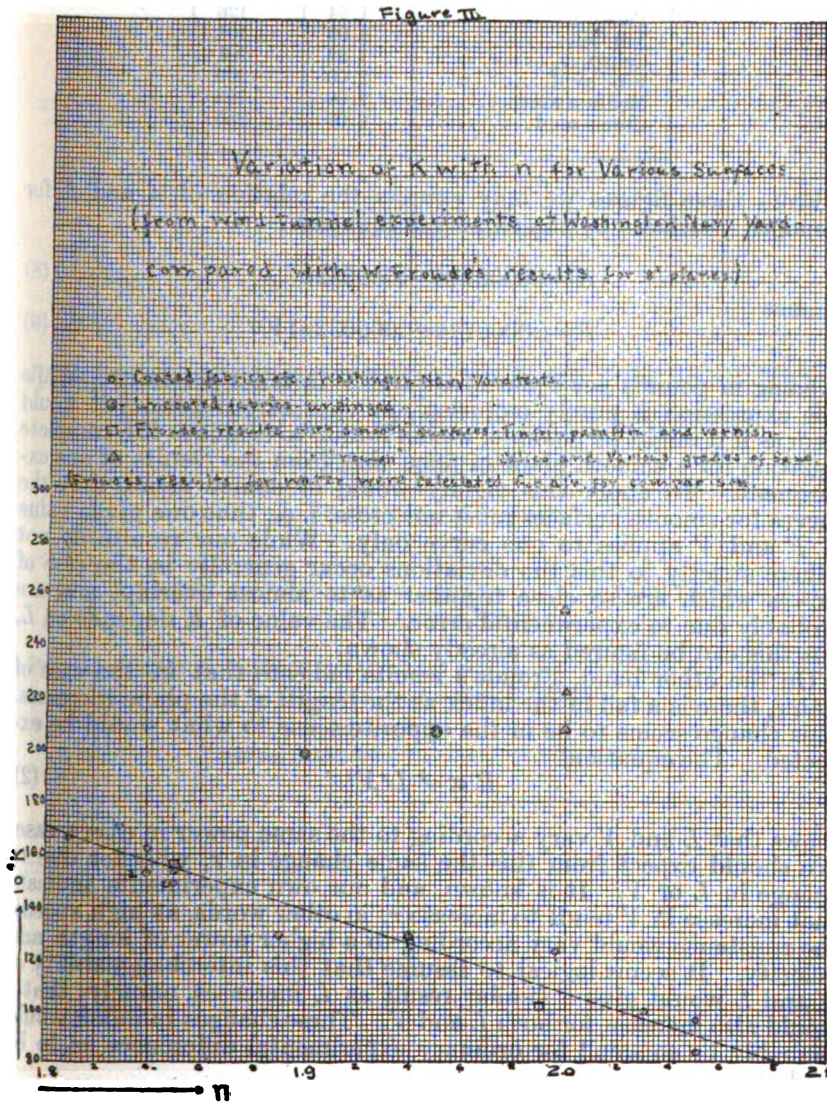 Figure III
Variation of K with n for Various Surfaces
(from wind tunnel experiments at Washington Navy Yard-
compared with W. Froude's results for 8' planes)
o- Coated fabrics etc. Washington Navy Yard tests
⊖- Uncoated fabrics- unsinged " " "
□- Froude's results with smooth surfaces- Tinfoil, paraffin and varnish
△ " " " "rough" " Calico and various grades of Sand.
(Froude's results for water were calculated for air, for comparison.
300
280
260
240
220
200
180
160
140
120
100
80
10 K
2 0
20
1.8 2 4 6 8 1.9 2 4 6 8 2.0 2 4 6 8 2.1
n